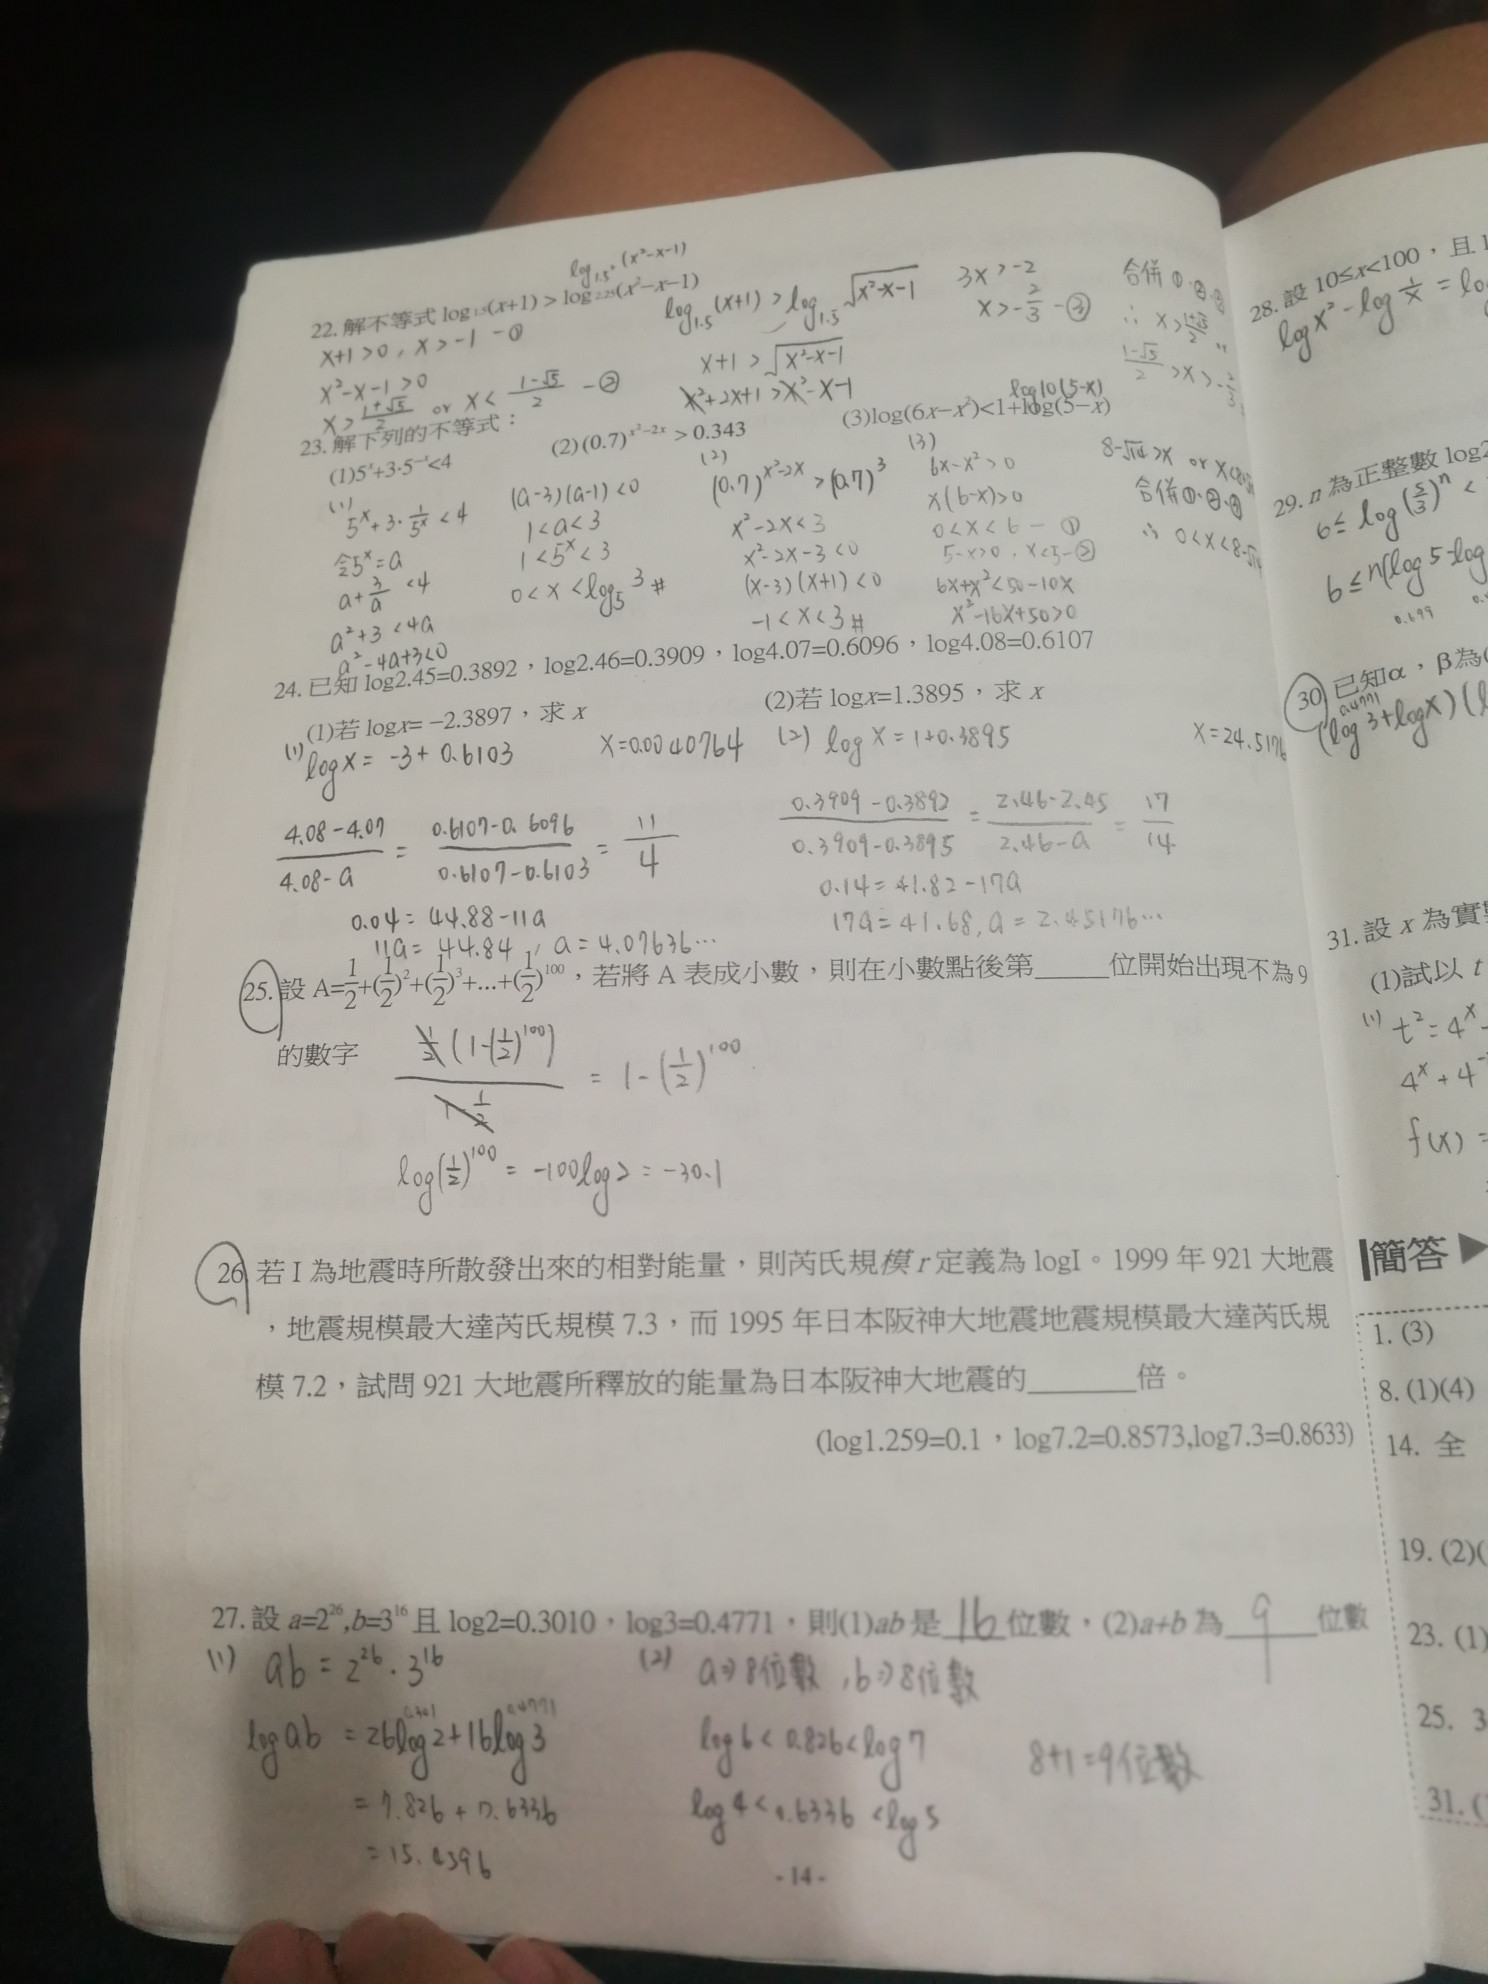 log₁.₅² (x²-x-1)
22. 解不等式 log₁.₅(x+1) > log₂.₂₅(x²−x−1)
x+1>0, x>-1 -①
x²-x-1>0
x>(1+√5)/2 or x<(1-√5)/2 -②
log₁.₅(x+1) > log₁.₅ √(x²-x-1)
x+1 > √(x²-x-1)
x²+2x+1 > x²-x-1
3x>-2
x>-2/3 -③
合併①.②.③
∴ x>(1+√5)/2
(1-√5)/2 >x>-2/3
23. 解下列的不等式：
(1)5ˣ+3·5⁻ˣ<4
(2)(0.7)^(x²−2x) > 0.343
log10(5-x)
(3)log(6x−x²)<1+log(5−x)
(1)
5ˣ+3·1/5ˣ <4
令5ˣ=a
a+3/a <4
a²+3<4a
a²-4a+3<0
(a-3)(a-1)<0
1<a<3
1<5ˣ<3
0<x<log₅3 #
(2)
(0.7)^(x²-2x) > (0.7)³
x²-2x<3
x²-2x-3<0
(x-3)(x+1)<0
-1<x<3 #
(3)
6x-x²>0
x(6-x)>0
0<x<6 -①
5-x>0, x<5 -②
6x+x²<50-10x
x²-16x+50>0
8-√14>x or x<8+√14
合併①.②.③
∴ 0<x<8-√14
24. 已知 log2.45=0.3892，log2.46=0.3909，log4.07=0.6096，log4.08=0.6107
(1)若 logx= −2.3897，求 x
(2)若 logx=1.3895，求 x
(1) logx = -3+0.6103
x=0.0040764
(4.08-4.07)/(4.08-a) = (0.6107-0.6096)/(0.6107-0.6103) = 11/4
0.04=44.88-11a
11a=44.84, a=4.07636…
(2) logx=1+0.3895
x=24.5176
(0.3909-0.3892)/(0.3909-0.3895) = (2.46-2.45)/(2.46-a) = 17/14
0.14=41.82-17a
17a=41.68, a=2.45176…
25. 設 A=1/2+(1/2)²+(1/2)³+...+(1/2)¹⁰⁰，若將 A 表成小數，則在小數點後第_____位開始出現不為 9
的數字
(1/2(1-(1/2)¹⁰⁰))/(1-1/2) = 1-(1/2)¹⁰⁰
log(1/2)¹⁰⁰ = -100log2 = -30.1
26. 若 I 為地震時所散發出來的相對能量，則芮氏規模 r 定義為 logI。1999 年 921 大地震
，地震規模最大達芮氏規模 7.3，而 1995 年日本阪神大地震地震規模最大達芮氏規
模 7.2，試問 921 大地震所釋放的能量為日本阪神大地震的_______倍。
(log1.259=0.1，log7.2=0.8573,log7.3=0.8633)
27. 設 a=2²⁶,b=3¹⁶ 且 log2=0.3010，log3=0.4771，則(1)ab 是 16 位數，(2)a+b 為 9 位數
(1) ab = 2²⁶·3¹⁶
0.301 0.4771
logab = 26log2+16log3
= 7.826+7.6336
= 15.4596
(2) a⇒8位數, b⇒8位數
log6<0.826<log7
log4<0.6336<log5
8+1=9位數
-14-
28. 設 10≤x<100，且
logx²-log1/x = lo
29. n 為正整數 log2
6≤ log(5/3)ⁿ <
6≤n(log5-log
0.699
30. 已知α，β為
0.4771
(log3+logx)(
31. 設 x 為實
(1)試以 t
(1) t²=4ˣ
4ˣ+4
f(x)=
簡答
1. (3)
8. (1)(4)
14. 全
19. (2)(
23. (1)
25. 3
31. (